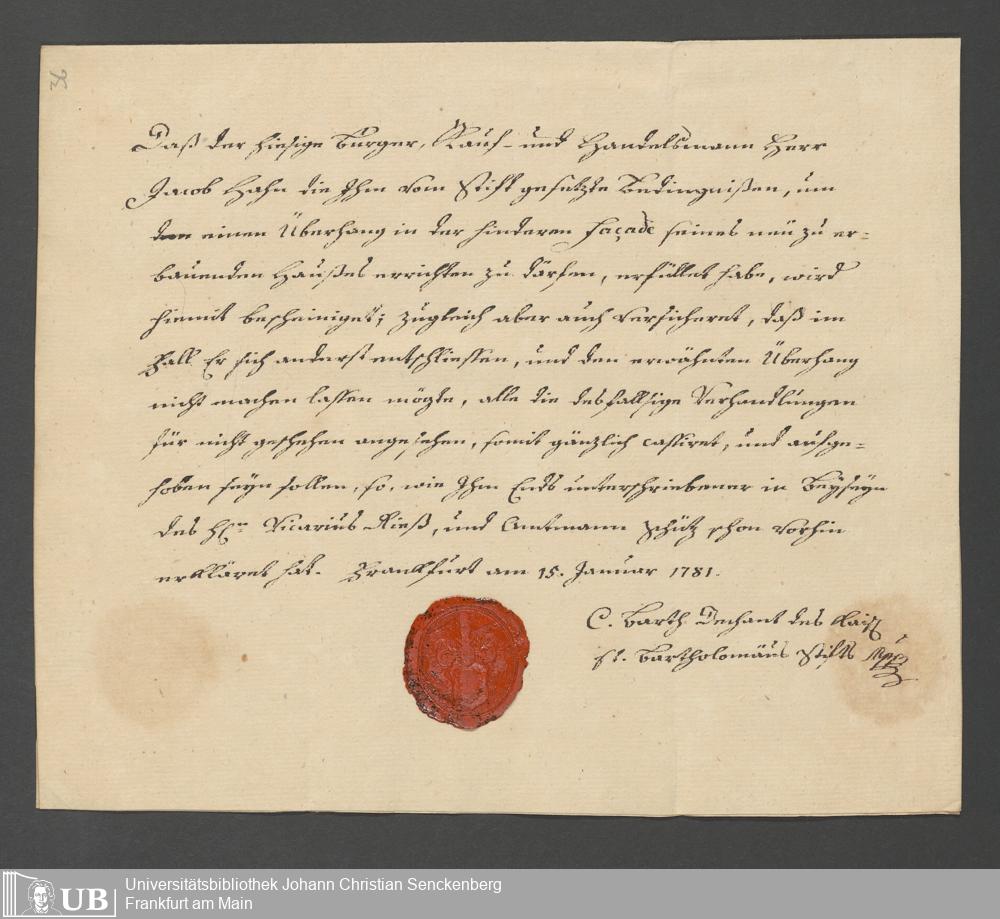 36
Daß der hiesige Burger, Kauf- und Handelsmann Herr
Jacob Hahn die Ihm vom Stift gesetzte Bedingnißen, um
einen Überhang in der hinderen façade seines neu zu er-
bauenden Haußes errichten zu dörfen, erfüllet habe, wird
hiemit bescheiniget; zugleich aber auch versicheret, daß im
Fall Er sich anderst entschliessen, und den erwähnten Überhang
nicht machen lassen mögte, alle die desfallsige Verhandlungen
für nicht geschehen angesehen, somit gänzlich cassiret, und aufge-
hoben seyn sollen, so, wie Ihm Ends unterschriebener in Beyseyn
des H. Vicarius Rieß, und Amtmann Schütz schon vorhin
erkläret hat. Franckfurt am 15. Januar 1781.
C. Barth Dechant des Kais
st. Bartholomäus Stifts
UB
Universitätsbibliothek Johann Christian Senckenberg
Frankfurt am Main